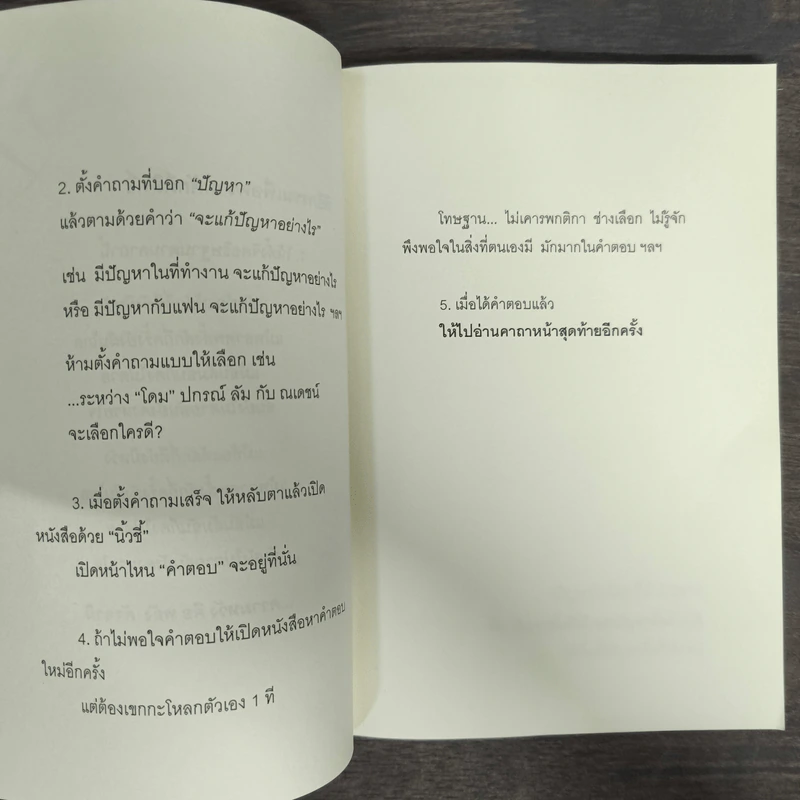 2. ตั้งคำถามที่บอก “ปัญหา”
แล้วตามด้วยคำว่า “จะแก้ปัญหาอย่างไร”
เช่น มีปัญหาในที่ทำงาน จะแก้ปัญหาอย่างไร
หรือ มีปัญหากับแฟน จะแก้ปัญหาอย่างไร ฯลฯ
ห้ามตั้งคำถามแบบให้เลือก เช่น
...ระหว่าง “โดม” ปกรณ์ ลัม กับ ณเดชน์
จะเลือกใครดี?
3. เมื่อตั้งคำถามเสร็จ ให้หลับตาแล้วเปิด
หนังสือด้วย “นิ้วชี้”
เปิดหน้าไหน “คำตอบ” จะอยู่ที่นั่น
4. ถ้าไม่พอใจคำตอบให้เปิดหนังสือหาคำตอบ
ใหม่อีกครั้ง
แต่ต้องเขกกะโหลกตัวเอง 1 ที
โทษฐาน... ไม่เคารพกติกา ช่างเลือก ไม่รู้จัก
พึงพอใจในสิ่งที่ตนเองมี มักมากในคำตอบ ฯลฯ
5. เมื่อได้คำตอบแล้ว
ให้ไปอ่านคาถาหน้าสุดท้ายอีกครั้ง